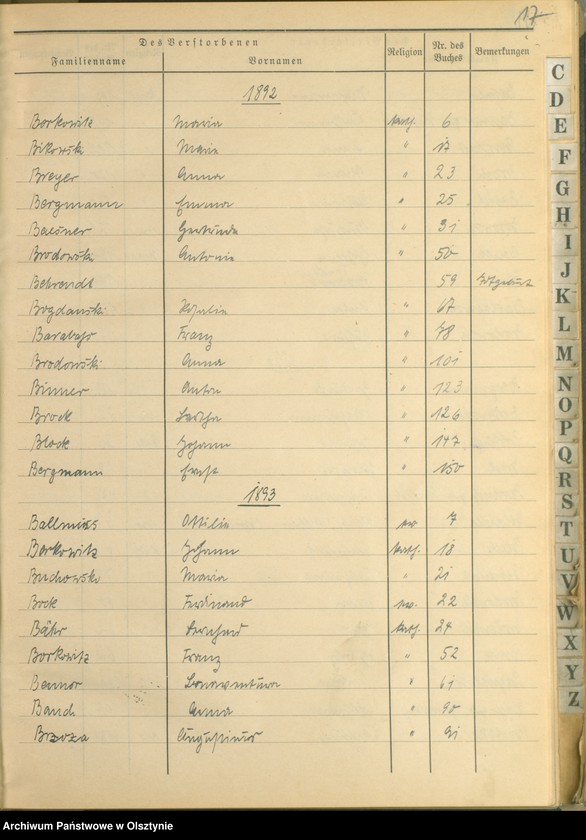 17
Des Verstorbenen
Familienname Vornamen Religion Nr. des Buches Bemerkungen
1892
Borkowitz Maria kath. 6
Bikowski Maria " 17
Breyer Anna " 23
Bergmann Emma " 25
Baesner Gertrude " 31
Brodowski Antonie " 50
Behrendt 59 Totgeburt
Bogdanski Rosalie " 67
Barabasz Franz " 78
Brodowski Anna " 101
Binner Anton " 123
Brock " 126
Block Johann " 147
Bergmann Ernst " 150
1893
Ballmies Ottilie ev. 7
Borkowitz Johann kath. 18
Buchowski Maria " 21
Bock Ferdinand ev. 22
Bähr Bernhard kath. 24
Borkowitz Franz " 52
Bonaventura " 61
Bauch Anna " 90
Brzoza Augustinus " 91
C
D
E
F
G
H
I
J
K
L
M
N
O
P
Q
R
S
T
U
V
W
X
Y
Z
Archiwum Państwowe w Olsztynie